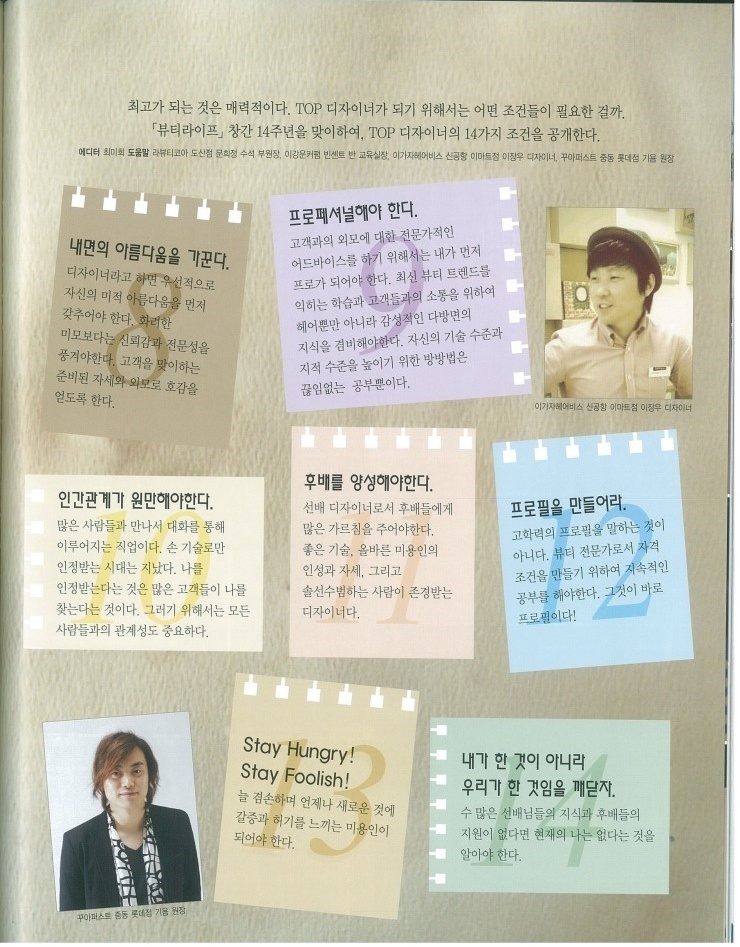 최고가 되는 것은 매력적이다. TOP 디자이너가 되기 위해서는 어떤 조건들이 필요한 걸까.
「뷰티라이프」 창간 14주년을 맞이하여, TOP 디자이너의 14가지 조건을 공개한다.
에디터 최미희 도움말 라뷰티코아 도산점 문희정 수석 부원장, 이강운커펌 빈센트 반 교육실장, 이가자헤어비스 신공항 이마트점 이장우 디자이너, 꾸아퍼스트 중동 롯데점 기욤 원장
8
내면의 아름다움을 가꾼다.
디자이너라고 하면 우선적으로
자신의 미적 아름다움을 먼저
갖추어야 한다. 화려한
미모보다는 신뢰감과 전문성을
풍겨야한다. 고객을 맞이하는
준비된 자세와 외모로 호감을
얻도록 한다.
9
프로페셔널해야 한다.
고객과의 외모에 대한 전문가적인
어드바이스를 하기 위해서는 내가 먼저
프로가 되어야 한다. 최신 뷰티 트렌드를
익히는 학습과 고객들과의 소통을 위하여
헤어뿐만 아니라 감성적인 다방면의
지식을 겸비해야한다. 자신의 기술 수준과
지적 수준을 높이기 위한 방방법은
끊임없는 공부뿐이다.
이가자헤어비스 신공항 이마트점 이장우 디자이너
10
인간관계가 원만해야한다.
많은 사람들과 만나서 대화를 통해
이루어지는 직업이다. 손 기술로만
인정받는 시대는 지났다. 나를
인정받는다는 것은 많은 고객들이 나를
찾는다는 것이다. 그러기 위해서는 모든
사람들과의 관계성도 중요하다.
11
후배를 양성해야한다.
선배 디자이너로서 후배들에게
많은 가르침을 주어야한다.
좋은 기술, 올바른 미용인의
인성과 자세, 그리고
솔선수범하는 사람이 존경받는
디자이너다.
12
프로필을 만들어라.
고학력의 프로필을 말하는 것이
아니다. 뷰티 전문가로서 자격
조건을 만들기 위하여 지속적인
공부를 해야한다. 그것이 바로
프로필이다!
꾸아퍼스트 중동 롯데점 기욤 원장
13
Stay Hungry!
Stay Foolish!
늘 겸손하며 언제나 새로운 것에
갈증과 허기를 느끼는 미용인이
되어야 한다.
14
내가 한 것이 아니라
우리가 한 것임을 깨닫자.
수 많은 선배님들의 지식과 후배들의
지원이 없다면 현재의 나는 없다는 것을
알아야 한다.